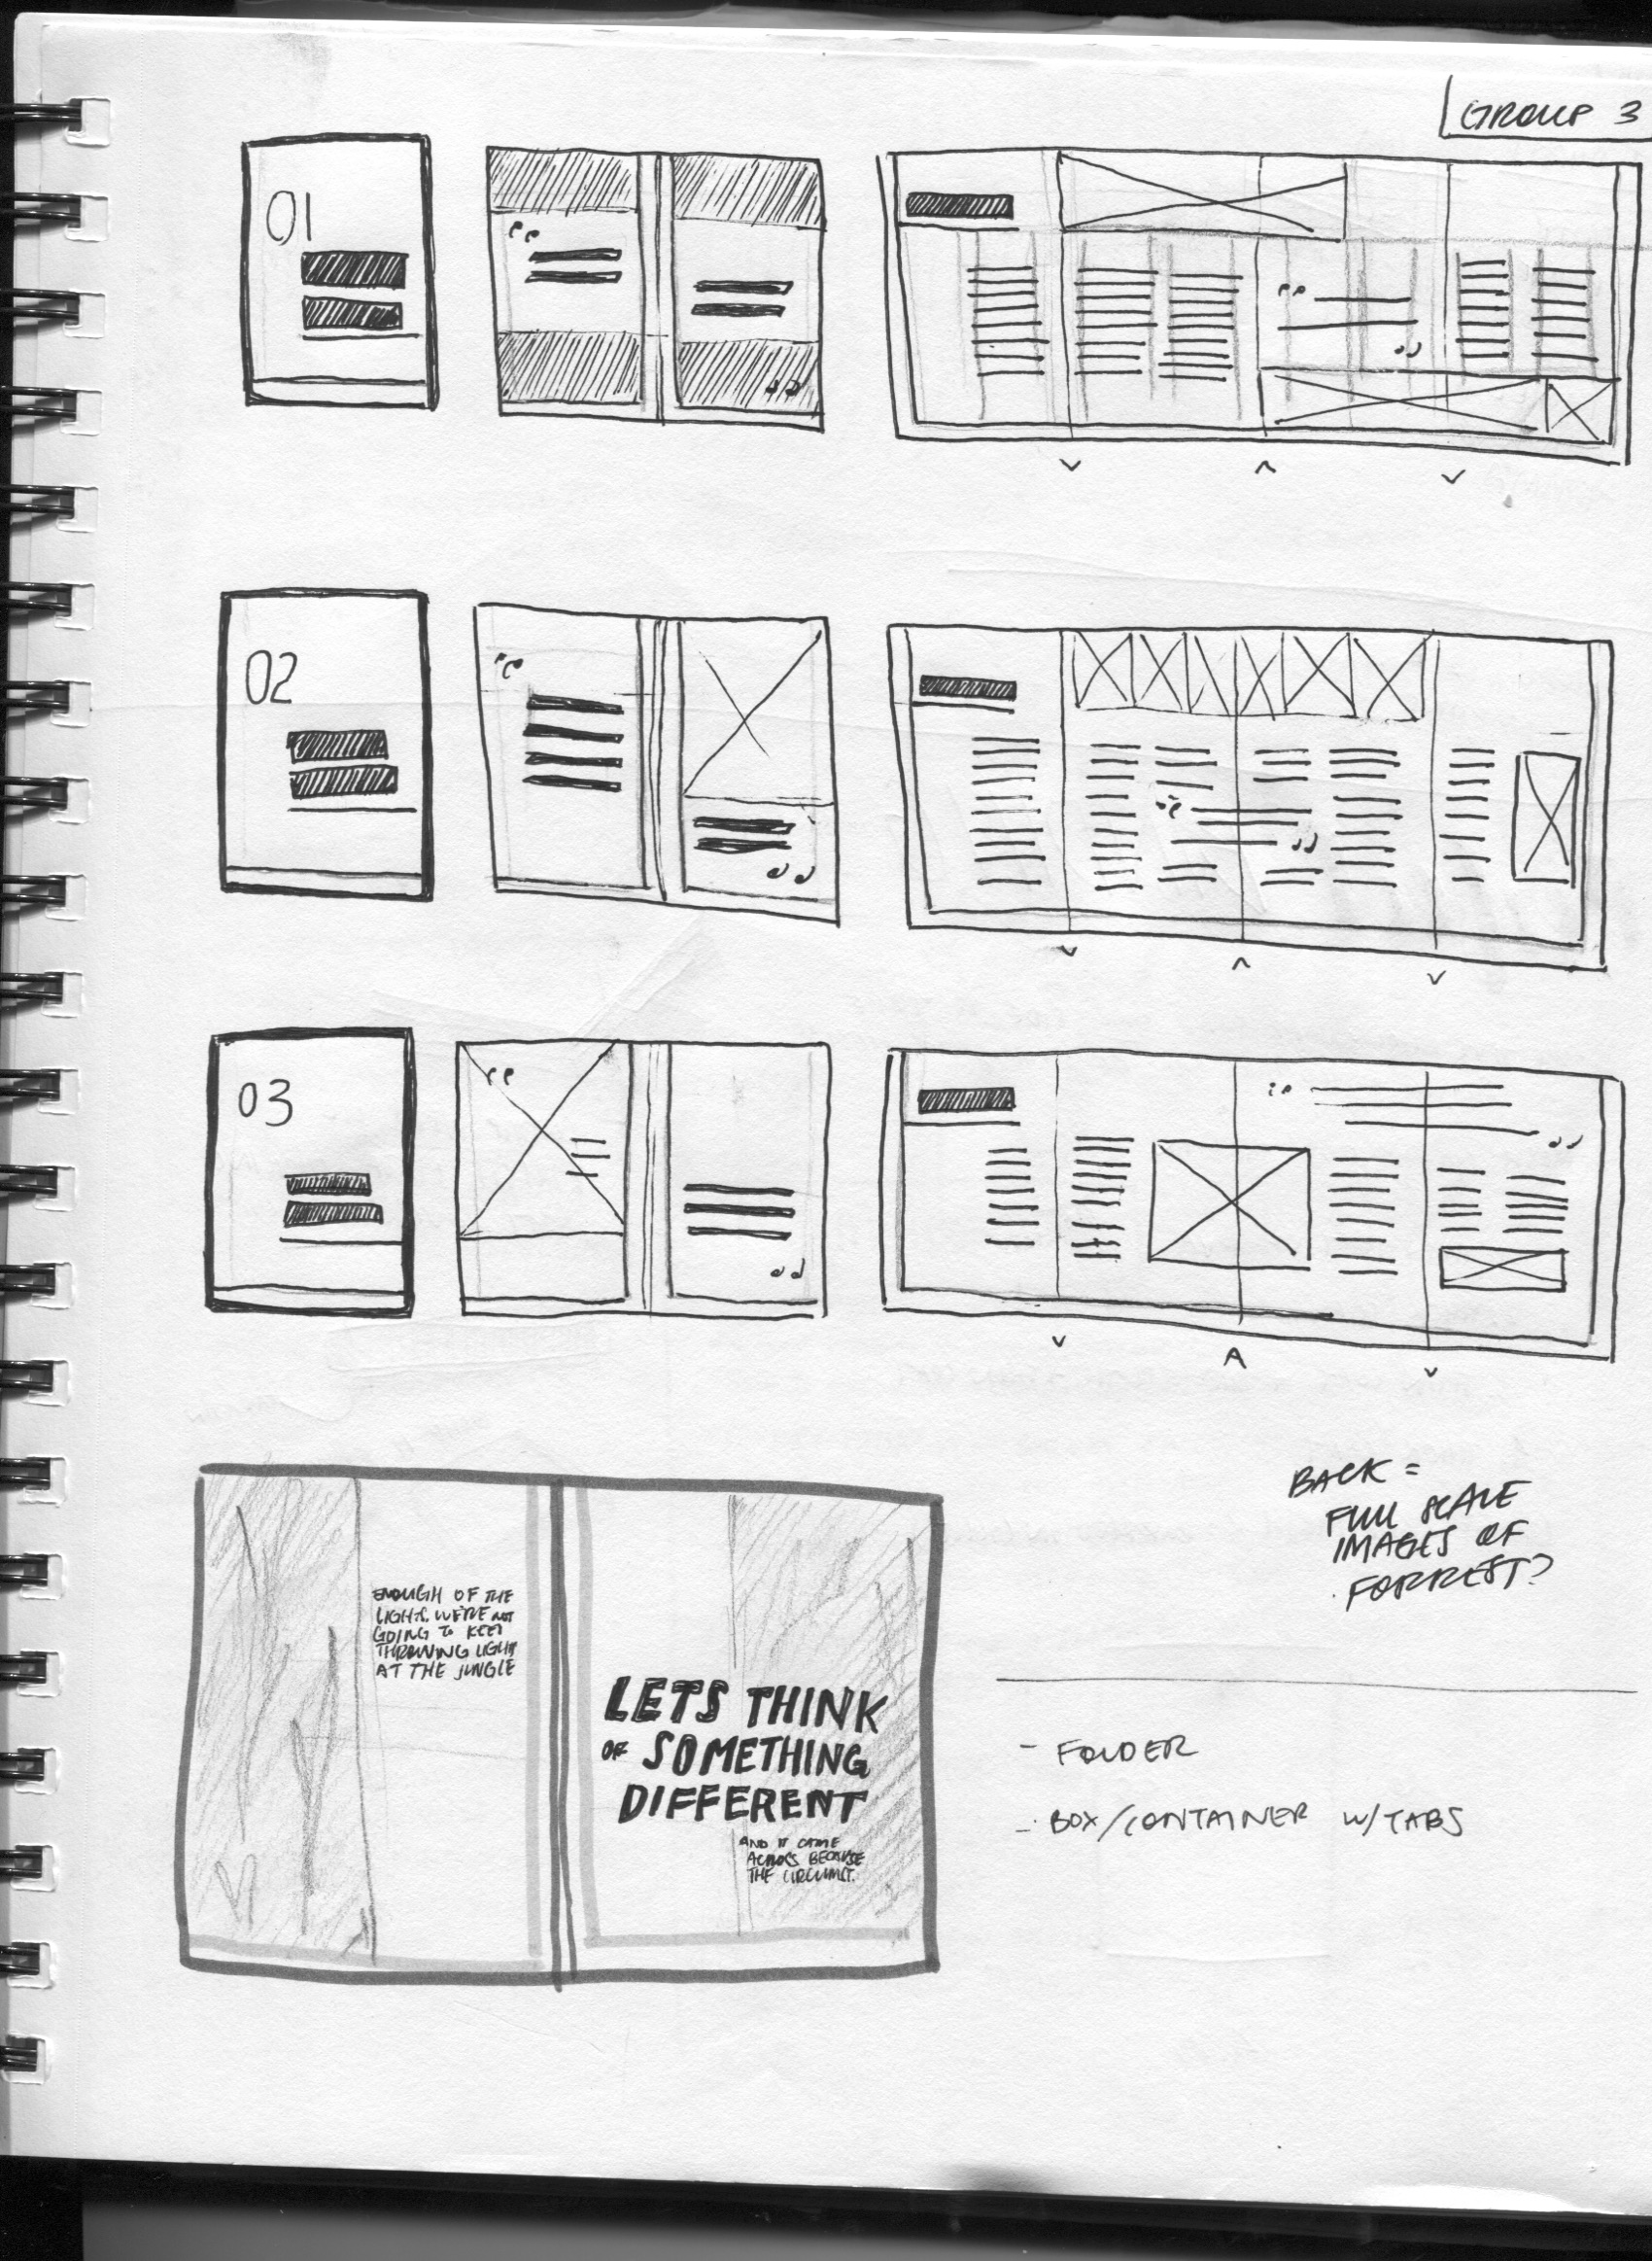 GROUP 3
01
02
03
BACK =
FULL SCALE
IMAGES OF
FORREST?
ENOUGH OF THE
LIGHTS. WE'RE NOT
GOING TO KEEP
THROWING LIGHT
AT THE JUNGLE
LETS THINK
OF SOMETHING
DIFFERENT
AND IT CAME
ACROSS BECAUSE
THE CIRCUMST.
- FOLDER
- BOX/CONTAINER W/TABS